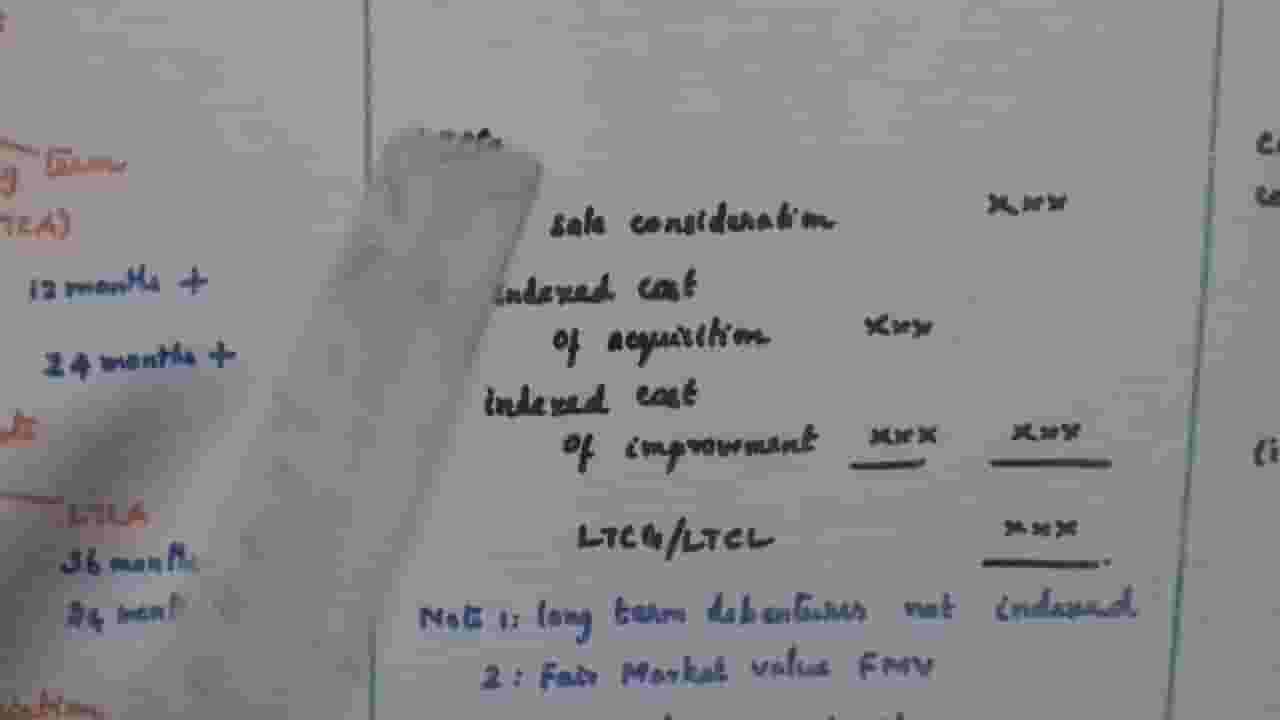 Term
TCA)
12 months +
24 months +
LTCA
36 months
24 mont
sale consideration xxx
indexed cost
of acquisition xxx
indexed cost
of improvement xxx xxx
LTCG/LTCL xxx
Note 1: long term debentures not indexed
2: Fair Market value FMV